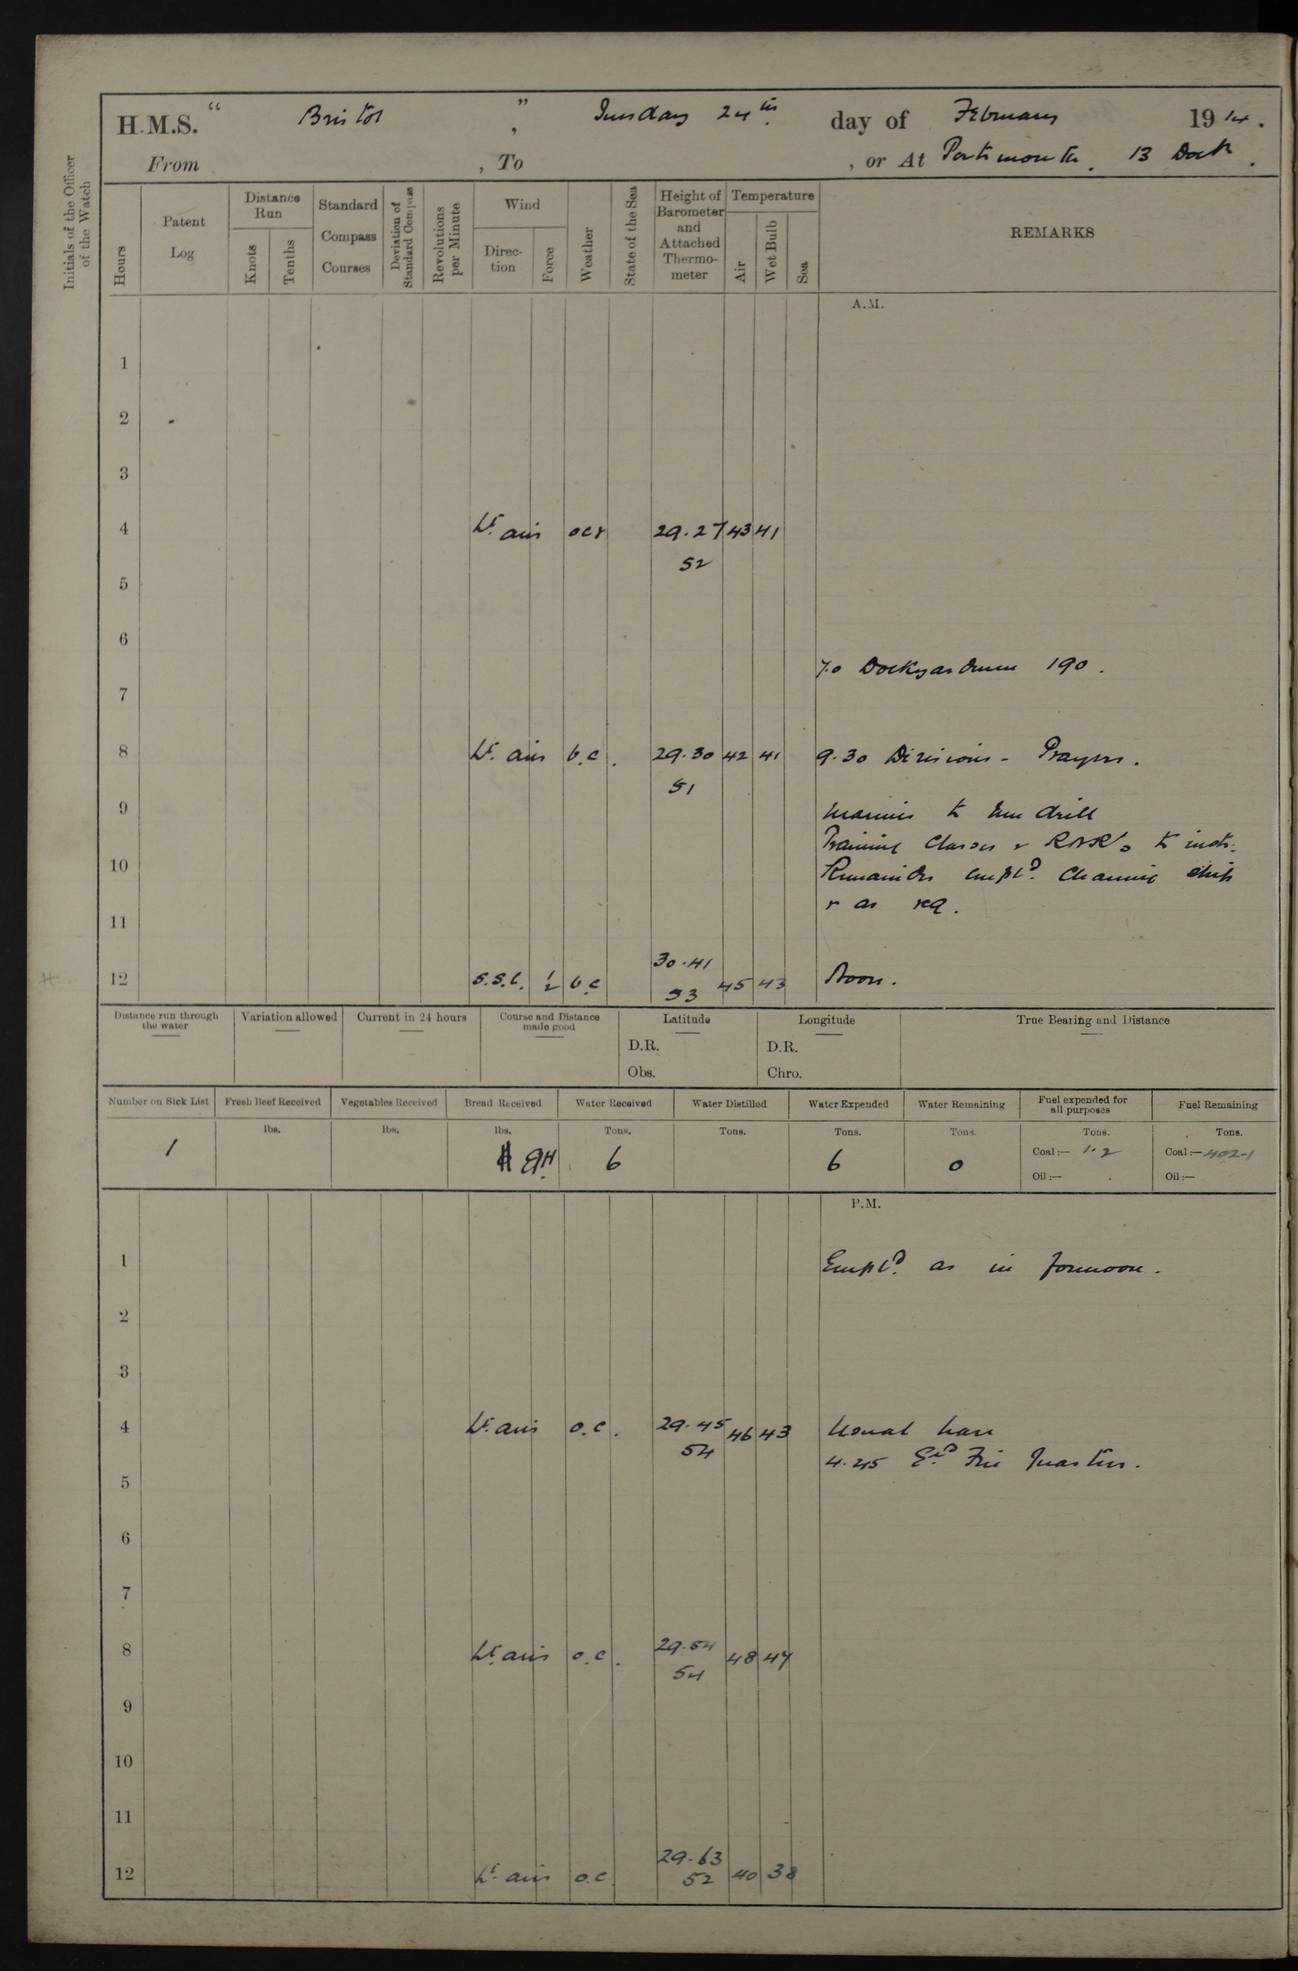 H.M.S. " Bristol ", Tuesday 24th. day of February 1914.
From , To , or At Portsmouth. 13 Dock.
Initials of the Officer of the Watch
Hours
Patent Log
Distance Run
Knots
Tenths
Standard Compass Courses
Deviation of Standard Compass
Revolutions per Minute
Wind
Direction
Force
Weather
State of the Sea
Height of Barometer and Attached Thermometer
Temperature
Air
Wet Bulb
Sea
REMARKS
A.M.
1
2
3
4 Lt. airs ocr 29.27 43 41
52
5
6
7.0 Dockyardmen 190.
7
8 Lt. airs b.c. 29.30 42 41 9.30 Divisions - Prayers.
51
9 Marines to Gun drill
Training Classes & RNR's to instr.
10 Remainder empld. Cleaning ship
& as req.
11
30.41
12 S.S.E. 1/2 b.c 53 45 43 Noon.
Distance run through the water
Variation allowed
Current in 24 hours
Course and Distance made good
Latitude
D.R.
Obs.
Longitude
D.R.
Chro.
True Bearing and Distance
Number on Sick List
Fresh Beef Received
Vegetables Received
Bread Received
Water Received
Water Distilled
Water Expended
Water Remaining
Fuel expended for all purposes
Fuel Remaining
lbs. lbs. lbs. Tons. Tons. Tons. Tons. Tons. Tons.
1 6 6 0 Coal:— 1.2 Coal:— 402-1
Oil:— Oil:—
P.M.
1 Empld. as in forenoon.
2
3
4 Lt. airs o.c. 29.45 46 43 Usual leave
54 4.45 Exd Fire Quarters.
5
6
7
8 Lt. airs o.c. 29.54 48 47
54
9
10
11
29.63
12 Lt. airs o.c. 52 40 38